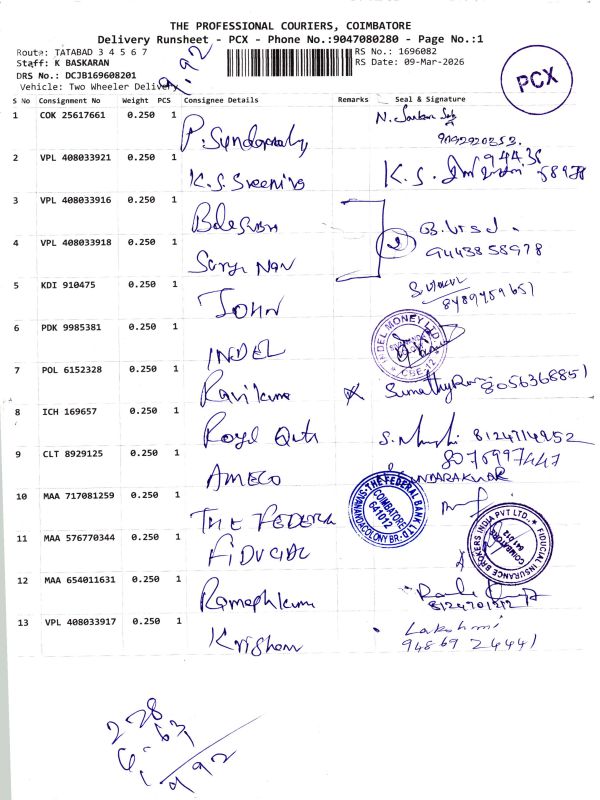 THE PROFESSIONAL COURIERS, COIMBATORE
Delivery Runsheet - PCX - Phone No.:9047080280 - Page No.:1
Route: TATABAD 3 4 5 6 7
RS No.: 1696082
Staff: K BASKARAN
RS Date: 09-Mar-2026
DRS No.: DCJB169608201
Vehicle: Two Wheeler Delivery
9.92
PCX
S No Consignment No Weight PCS Consignee Details Remarks Seal & Signature
1 COK 25617661 0.250 1
2 VPL 408033921 0.250 1 K.S. Sreeniva K. S.
3 VPL 408033916 0.250 1
9443858978
4 VPL 408033918 0.250 1
5 KDI 910475 0.250 1 JOHN
8489459651
6 PDK 9985381 0.250 1 INDEL INDEL MONEY LTD * CBE-12 *
7 POL 6152328 0.250 1 Ravikuma 8056368851
8 ICH 169657 0.250 1 Royal 8124714952
9 CLT 8929125 0.250 1 AMECO 8075997447
10 MAA 717081259 0.250 1 THE FEDERA THE FEDERAL BANK LTD. COIMBATORE 641012
11 MAA 576770344 0.250 1 FIDUCIAL FIDUCIAL INSURANCE BROKERS INDIA PVT LTD., * COIMBATORE 641 012
12 MAA 654011631 0.250 1 Rameshkuma
8124701212
13 VPL 408033917 0.250 1 Krishan Lakshmi
94869 24441
2-28
6-63
9 92